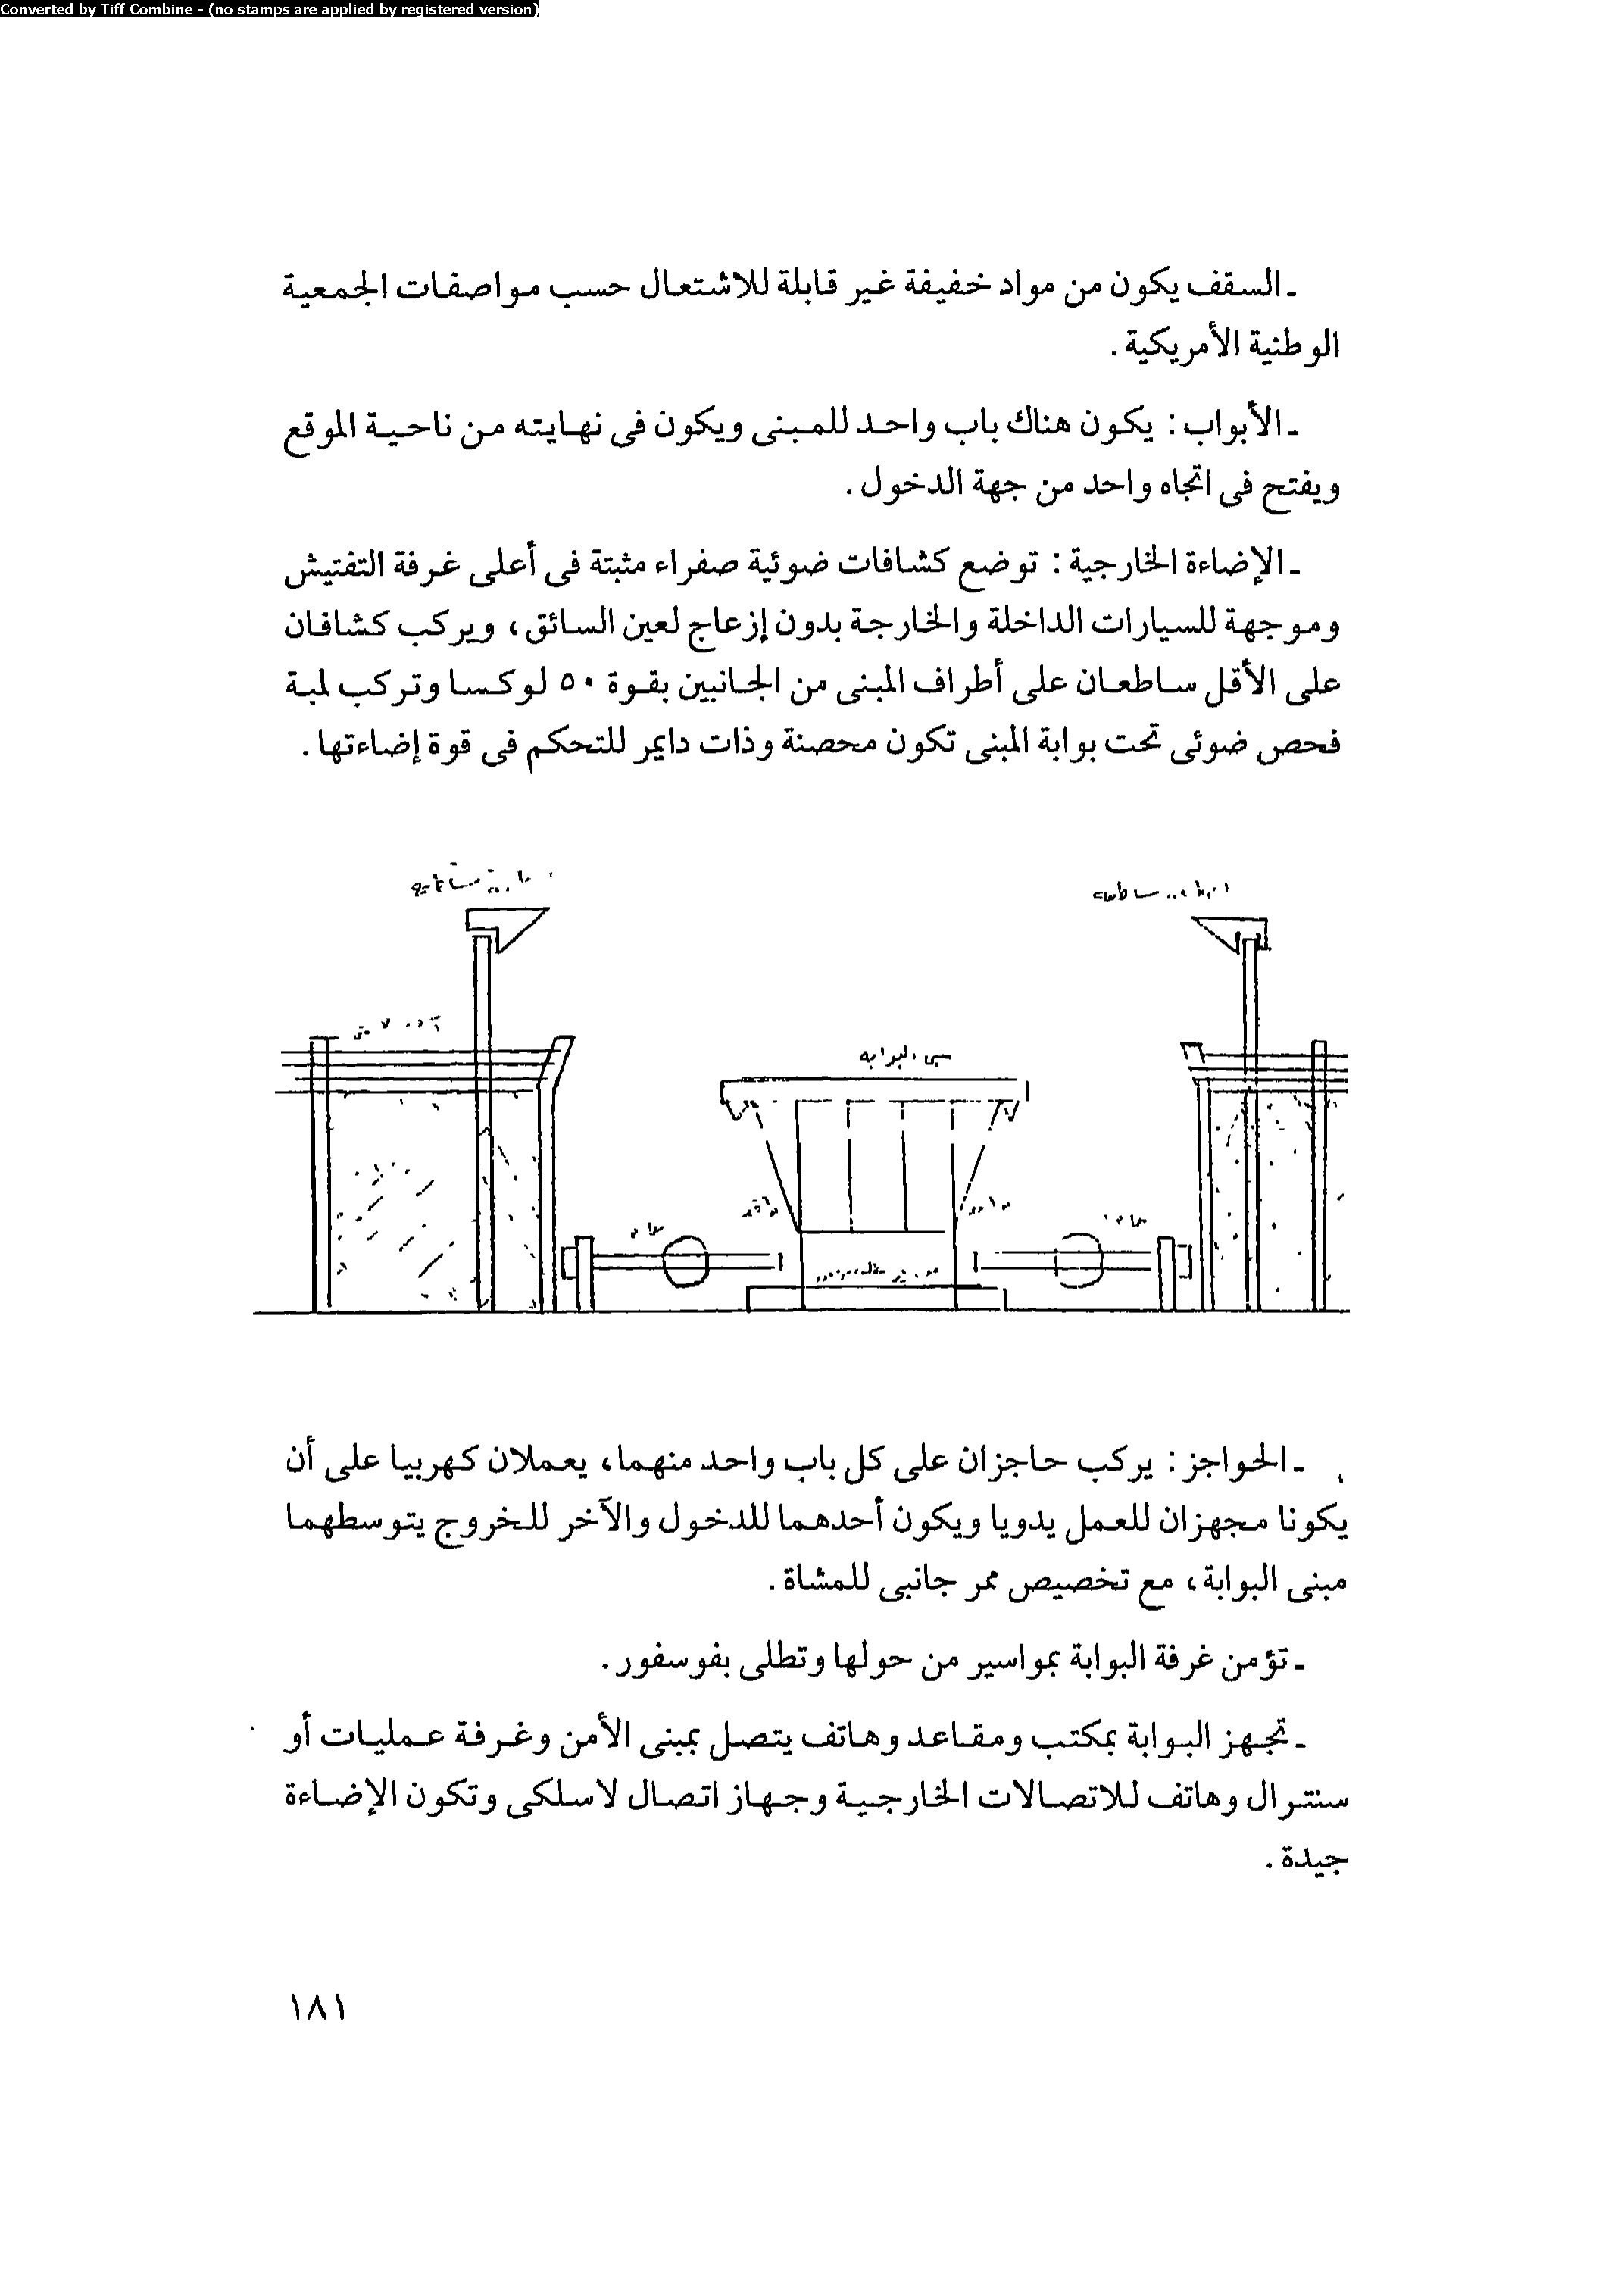 Converted by Tiff Combine - (no stamps are applied by registered version)
ـ السقف يكون من مواد خفيفة غير قابلة للاشتعال حسب مواصفات الجمعية
الوطنية الأمريكية .
ـ الأبواب : يكون هناك باب واحد للمبنى ويكون فى نهايته من ناحية الموقع
ويفتح فى اتجاه واحد من جهة الدخول .
ـ الإضاءة الخارجية : توضع كشافات ضوئية صفراء مثبتة فى أعلى غرفة التفتيش
وموجهة للسيارات الداخلة والخارجة بدون إزعاج لعين السائق ، ويركب كشافان
على الأقل ساطعان على أطراف المبنى من الجانبين بقوة ٥٠ لوكسا وتركب لمبة
فحص ضوئى تحت بوابة المبنى تكون محصنة وذات دايمر للتحكم فى قوة إضاءتها .
ساطعه
البوابه
ـ الحواجز : يركب حاجزان على كل باب واحد منهما، يعملان كهربيا على أن
يكونا مجهزان للعمل يدويا ويكون أحدهما للدخول والآخر للخروج يتوسطهما
مبنى البوابة ، مع تخصيص ممر جانبى للمشاة .
ـ تؤمن غرفة البوابة بمواسير من حولها وتطلى بفوسفور .
ـ تجهز البوابة بمكتب ومقاعد وهاتف يتصل بمبنى الأمن وغرفة عمليات أو
سنترال وهاتف للاتصالات الخارجية وجهاز اتصال لاسلكى وتكون الإضاءة
جيدة .
١٨١